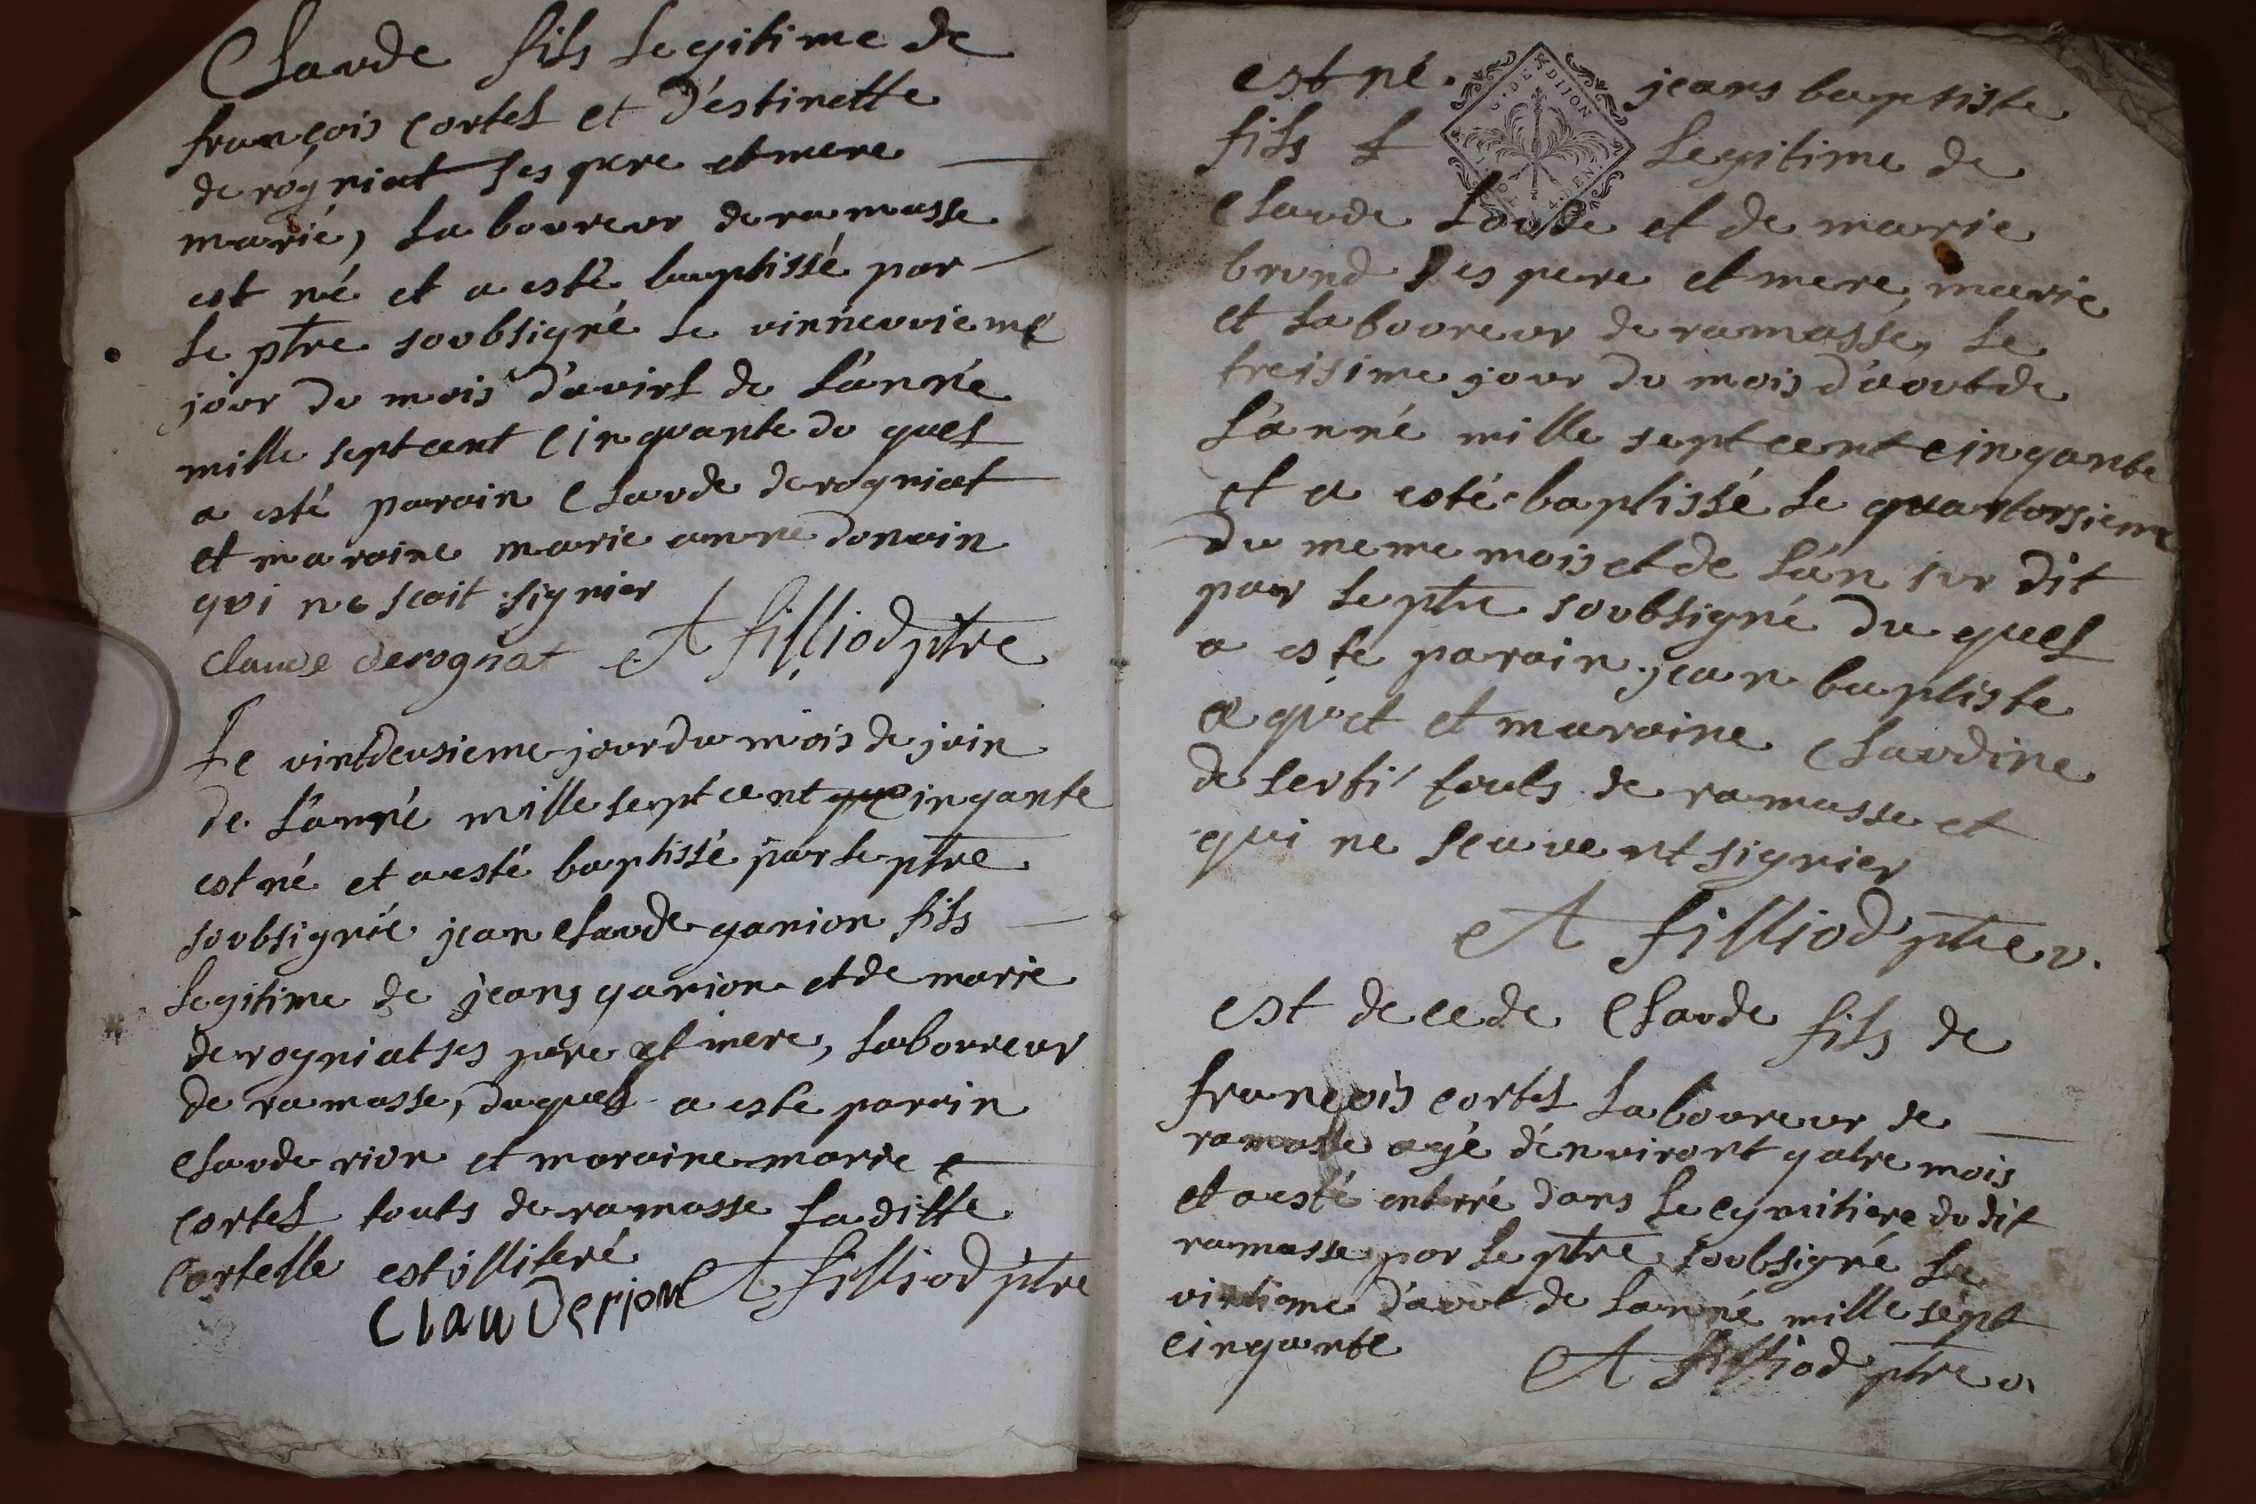 Claude fils legitime de
françois cortel et d'estinette
de rogniat ses pere et mere
marié, laboureur de ramasse
est né et a esté baptissé par
le ptre soubsigné le vinneuvieme
jour du mois d'avirl de l'année
mille septcent cinquante du quel
a esté parain claude derogniat
et maraine marie anne donain
qui ne scait signier
claude derognat A filliod ptre
Le vintdeusieme jour du mois de juin
de l'anné mille septcent cinqante
est né et a esté baptissé par le ptre
soubsigné jean claude ganion fils
legitime de jeans ganion et de marie
derogniat ses père et mere, laboureur
de ramasse, duquel a esté parain
claude rion et maraine marie
cortel touts de ramasse laditte
cortelle est illiteré
Clauderion A filliod ptre
est né. jeans baptiste
fils L legitime de
claude et de marie
brund ses pere et mere, marie
et laboureur de ramasse, le
treisime jour du mois d'aout de
l'anné mille septcent cinqante
et a esté baptissé le quartorsieme
du meme mois et de l'an sur dit
par le ptre soubsigné du quel
a esté parain jean baptiste
et maraine claudine
de touts de ramasse et
qui ne scavent signier
A filliod ptre v.
est decede claude fils de
françois cortel laboureur de
ramasse agé d'environt qatre mois
et a esté enterré dans le cymitiere dudit
ramasse par le ptre soubsigné le
vintieme d'aout de l'anné mille sept
cinqante
A filliod ptre v.
G. DE DIJON
4. DEN